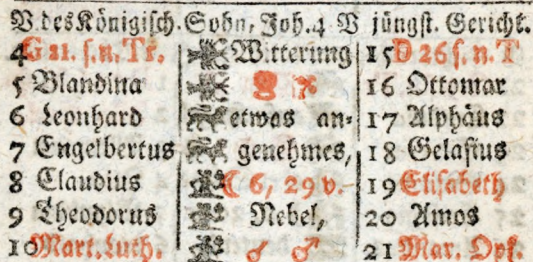 V des Königisch. Sohn, Joh. 4 V jüngst. Gericht.
4 G 21. s. n. Tr. Witterung 15 D 26 s. n. T
5 Blandina 16 Ottomar
6 Leonhard etwas an- 17 Alphäus
7 Engelbertus genehmes, 18 Gelasius
8 Claudius ☾ 6, 29 v. 19 Elisabeth
9 Theodorus Nebel, 20 Amos
10 Mart. Luth. ♂ ♂ 21 Mar. Opf.